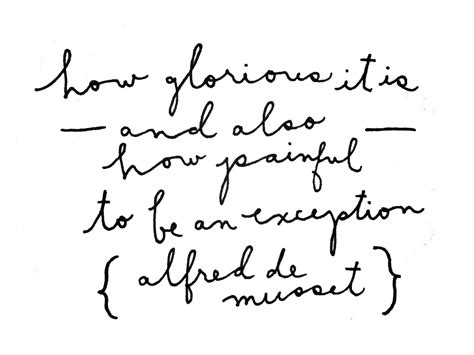 how glorious it is
— and also —
how painful
to be an exception
{ alfred de
musset }